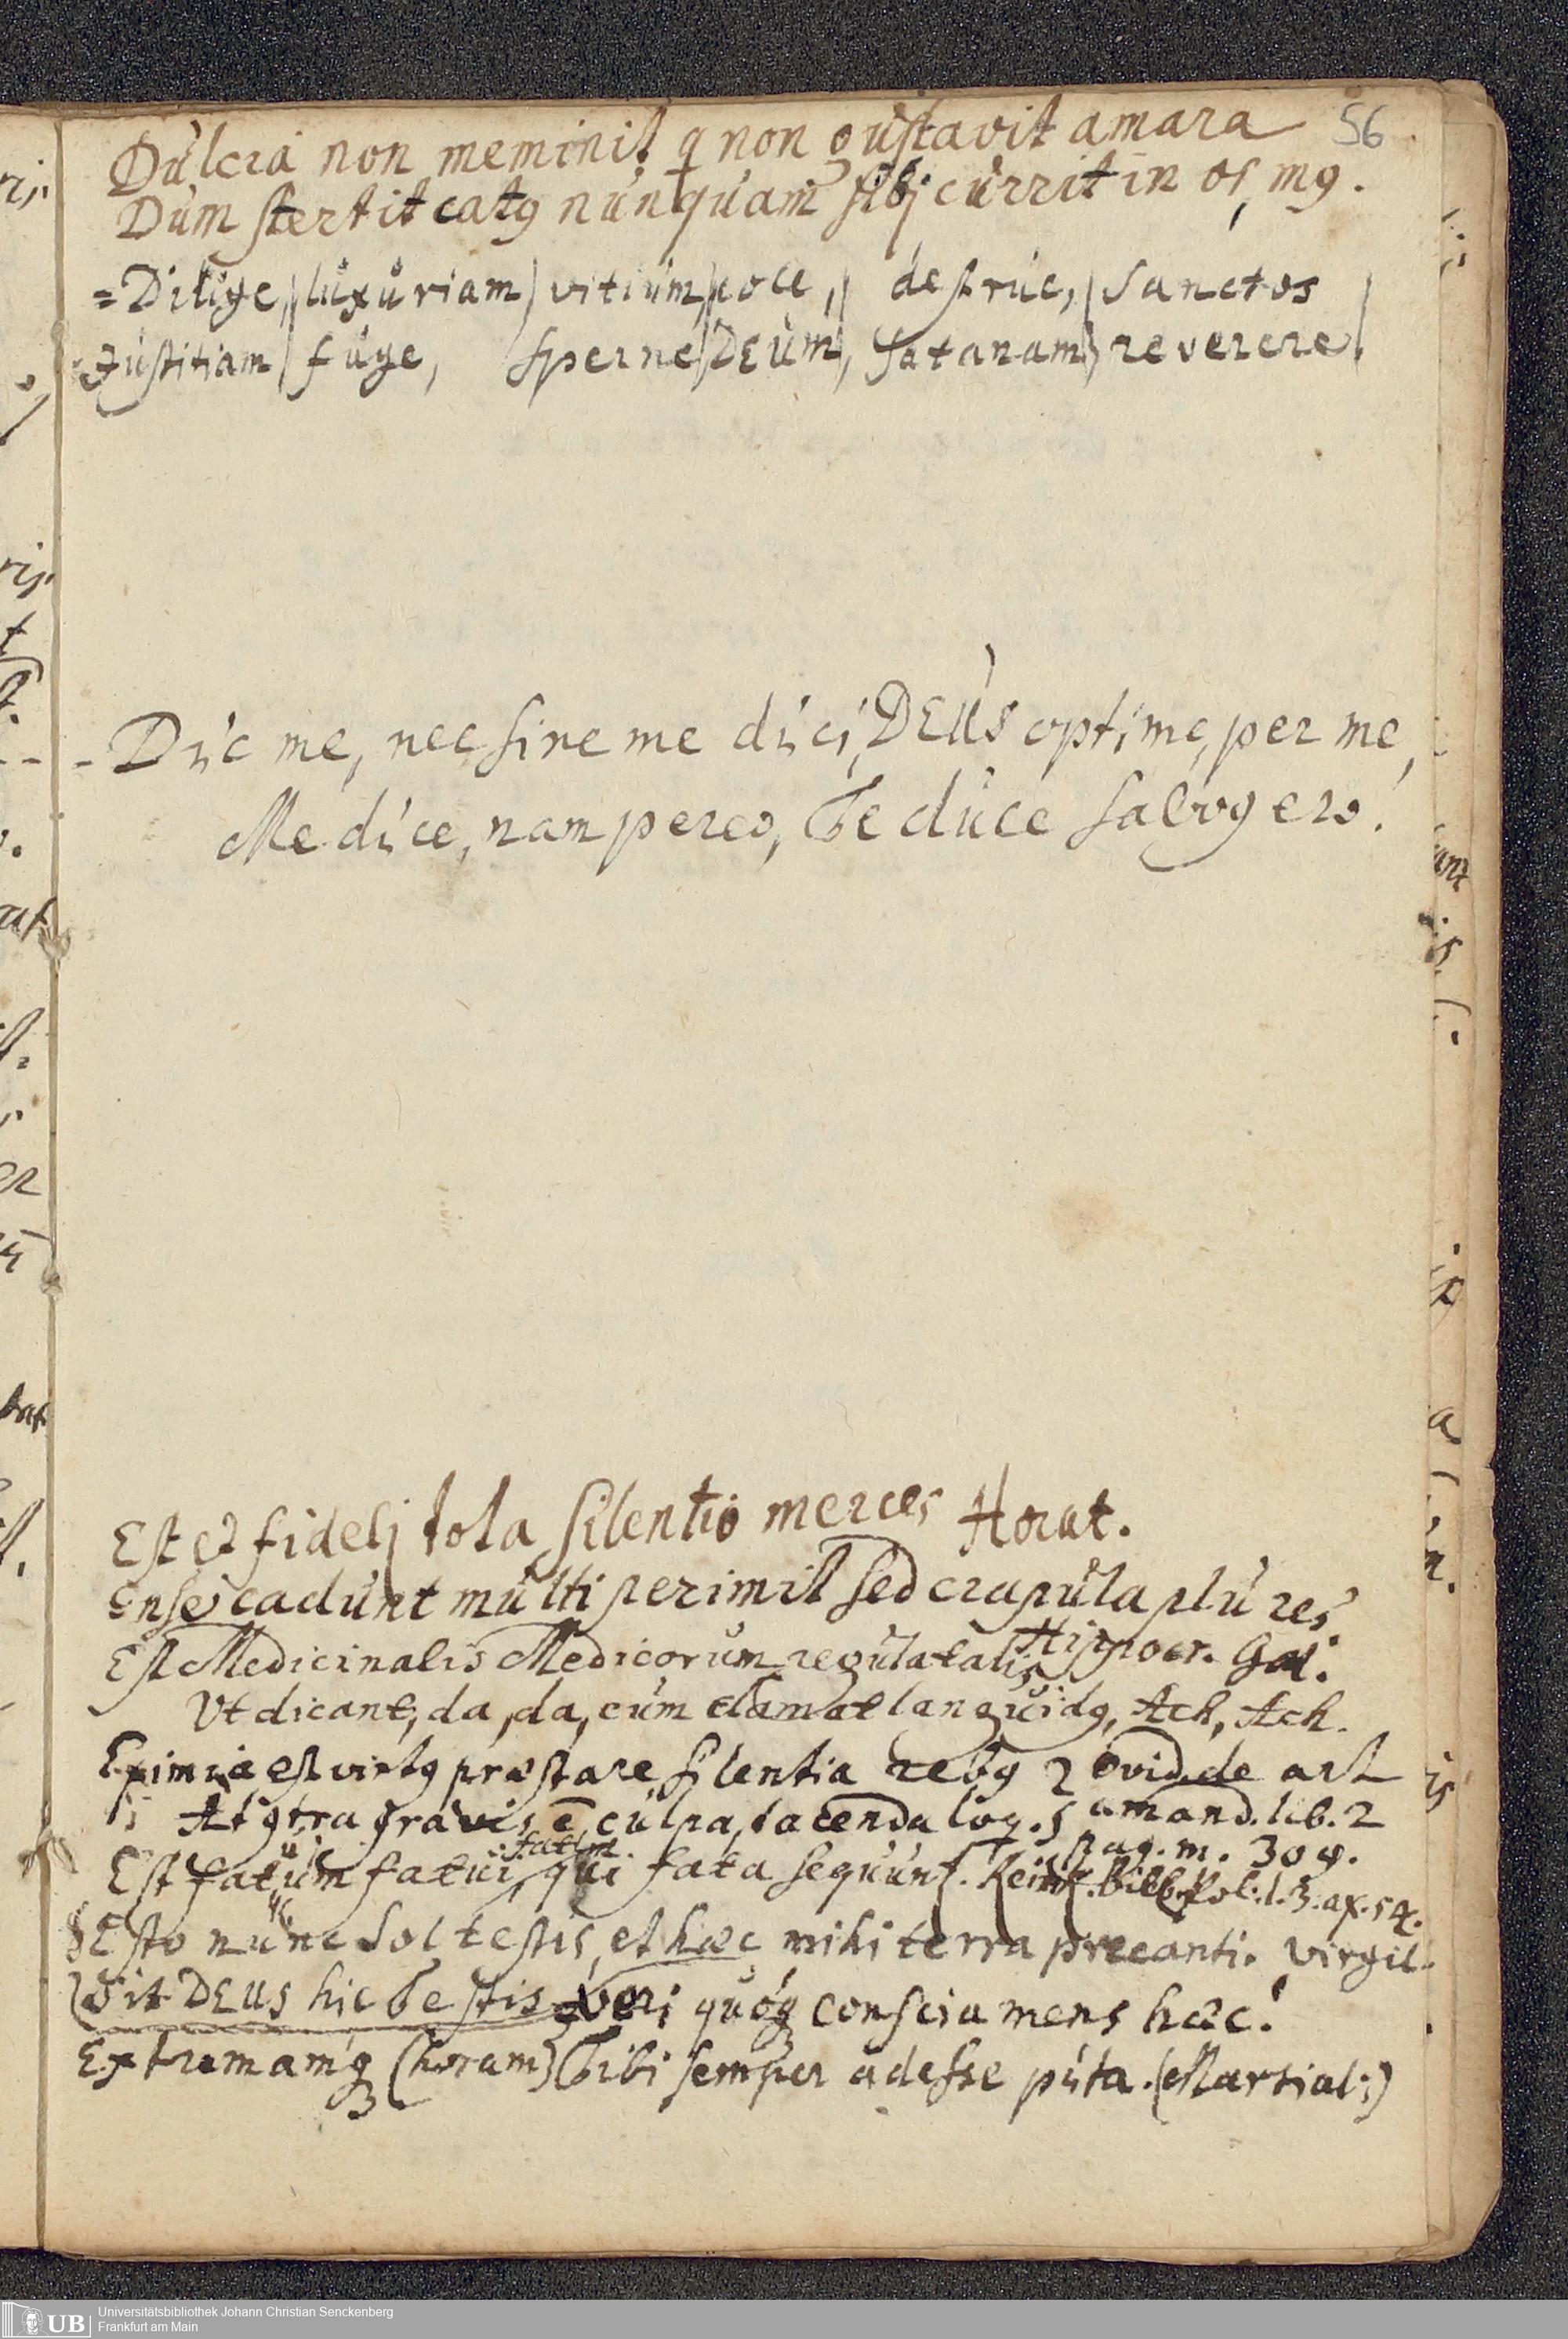 56
Dulcia non meminit q non gustavit amara
Dum stertit catꝯ nunquam sibj currit in os, mꝯ.
=Dilige, | luxuriam | vitium, | cole, | destrue, | Sanctos
Justitiam | fuge, Sperne | DEum, Satanam | reverere |
- Duc me, nec sine me duci, DEUS optime, per me,
Me duce, nam pereo, Te duce salvꝯ ero.
Est et fidelj tota silentio merces Horat.
Ense cadunt multi perimit sed crapula plures
Est Medicinalis Medicorum regula talis Hippocr. Gal.
Vt dicant, da, da, cum clamat languidꝯ, Ach, Ach.
Eximia est virtꝯ præstare silentia rebꝯ Ovid. de art
At ꝯtra gravis ē culpa, tacenda loq. amand. lib. 2
pag. m. 304.
Est fatuum fatui, qui fata sequunt. Pol. l. 3. ax. 54.
Esto nunc Sol testis, et hæc mihi terra precanti. Virgil.
Sit DEUS hic Testis veri quóq conscia mens hæc!
Extremamq́ (horam) Tibi semper adesse puta. (Martial:)
Universitätsbibliothek Johann Christian Senckenberg
Frankfurt am Main
UB